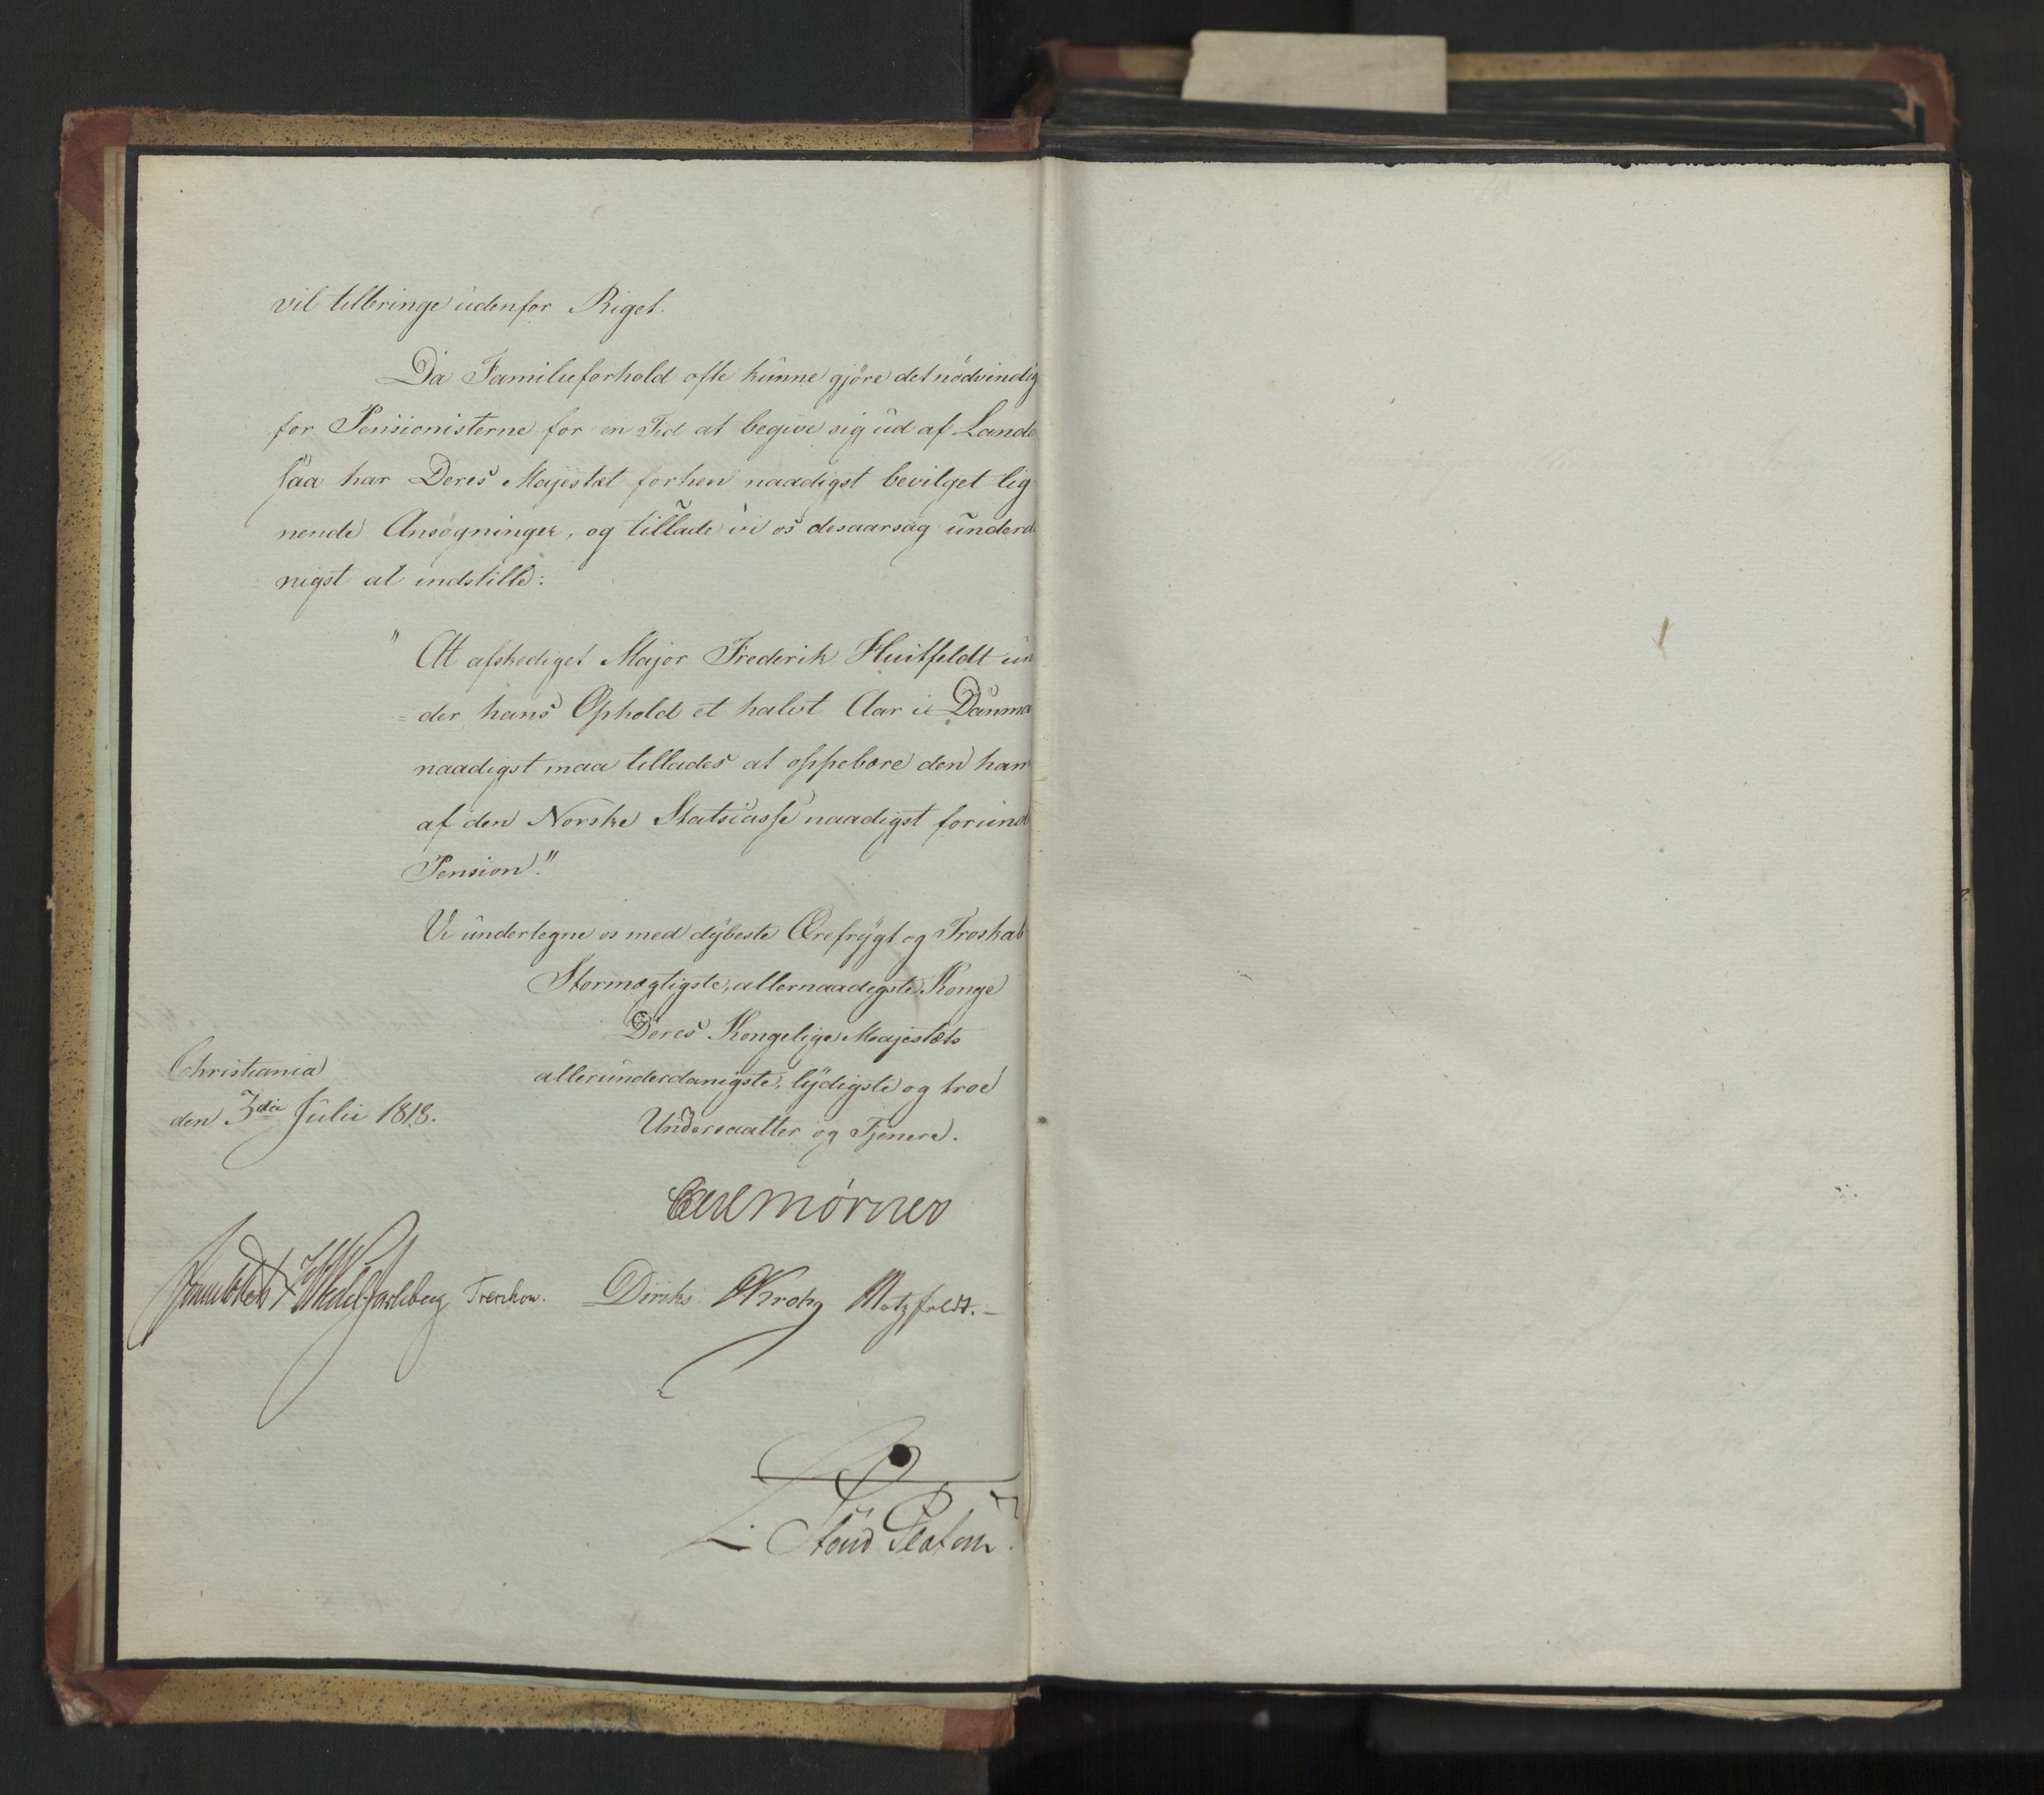 vil tilbringe udenfor Riget.
Da Familieforhold ofte kunne gjøre det nödvendig
for Pensionisterne for en Tid at begive sig ud af Lande
saa har Deres Majestæt forhen naadigst bevilget lig
nende Ansøgninger, og tillade vi os desaarsag underd
nigst at indstille:
" At afskediget Major Frederik Huitfeldt un
= der hans Ophold et halvt Aar i Danma
naadigst maa tillades at oppebære den ham
af den Norske Statscasse naadigst forund
Pension."
Vi undertegne os med dybeste Ærefrygt og Troskab
Stormægtigste, allernaadigste Konge
Deres Kongelige Majestæts
allerunderdanigste, lydigste og troe
Undersaatter og Tjenere.
Christiania
den 3die Julii 1818.
Carl Mörner
Sommerhielm Wedel Jarlsberg Treschow. Diriks Krohg Motzfeldt.
L. Stoud Platou.